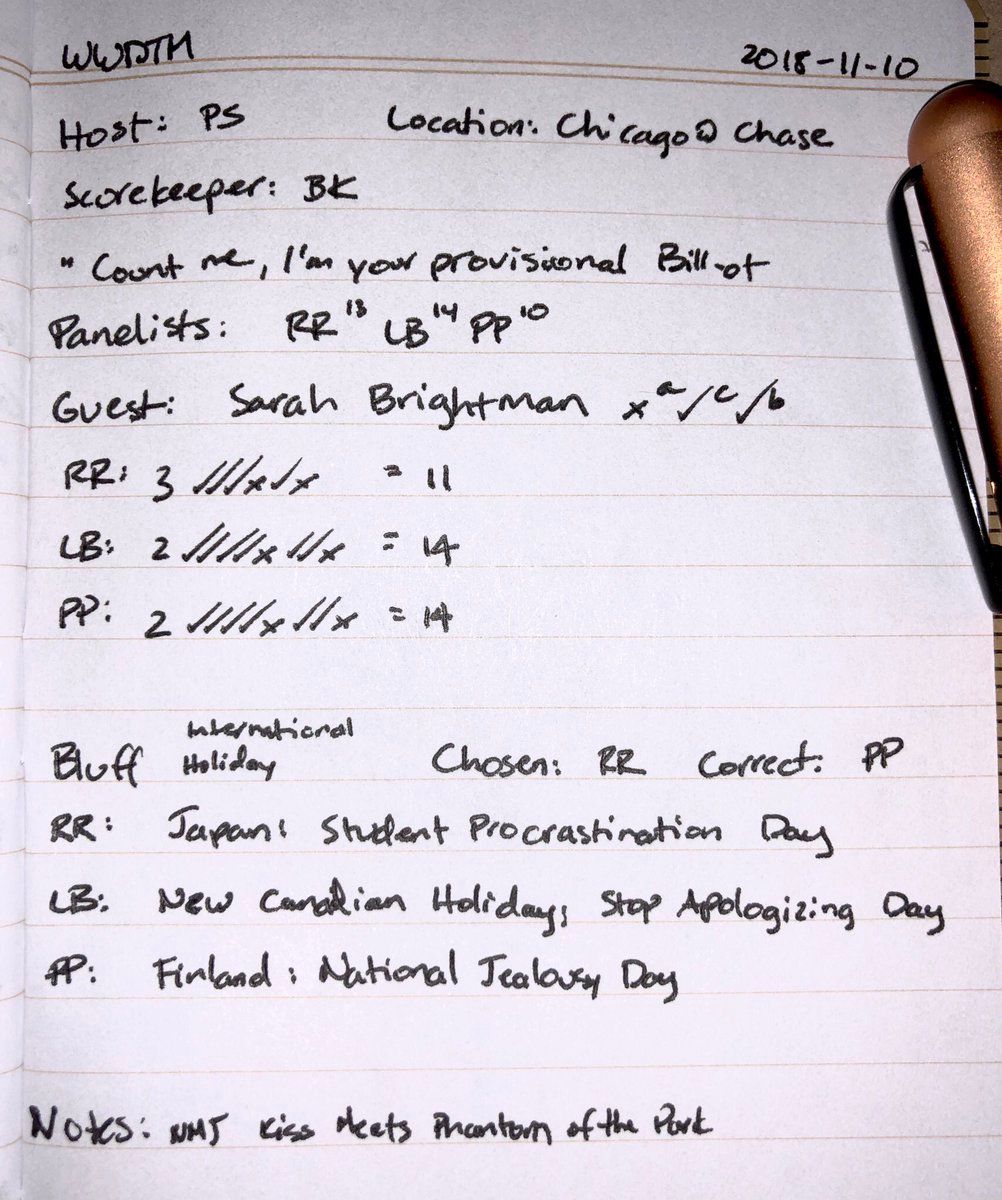 WWDTM 2018-11-10
Host: PS Location: Chicago@ Chase
Scorekeeper: BK
" Count me, I'm your provisional Bill-ot
Panelists: RR¹³ LB¹⁴ PP¹⁰
Guest: Sarah Brightman xᵃ/ᶜ/ᵇ
RR: 3 ✓✓✓x✓x = 11
LB: 2 ✓✓✓✓x✓✓x = 14
PP: 2 ✓✓✓✓x✓✓x = 14
Bluff International Holiday Chosen: RR Correct: PP
RR: Japan: Student Procrastination Day
LB: New Canadian Holiday; Stop Apologizing Day
PP: Finland: National Jealousy Day
Notes: NMJ Kiss Meets Phantom of the Park